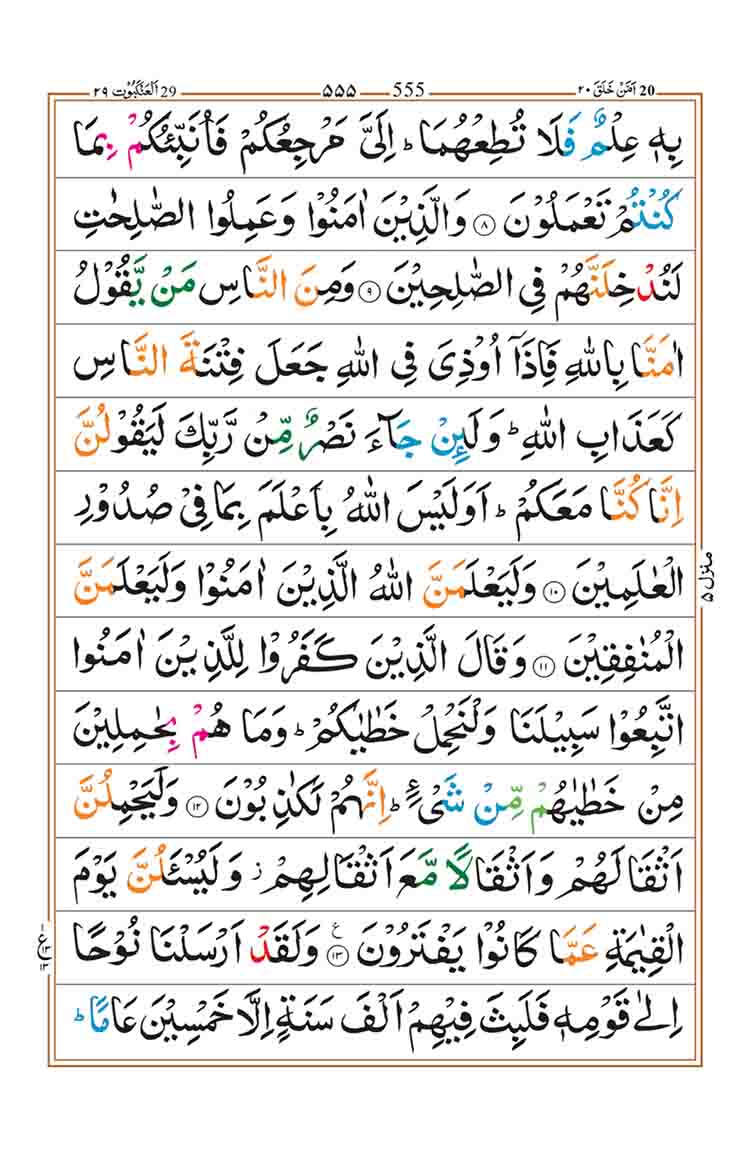 29 اَلْعَنْكَبُوْت ٢٩ ۵۵۵ 555 اَمَّنْ خَلَقَ ٢٠ 20
بِهٖ عِلْمٌ فَلَا تُطِعْهُمَا ؕ اِلَیَّ مَرْجِعُكُمْ فَاُنَبِّئُكُمْ بِمَا
كُنْتُمْ تَعْمَلُوْنَ ۝۸ وَالَّذِیْنَ اٰمَنُوْا وَعَمِلُوا الصّٰلِحٰتِ
لَنُدْخِلَنَّهُمْ فِی الصّٰلِحِیْنَ ۝۹ وَمِنَ النَّاسِ مَنْ یَّقُوْلُ
اٰمَنَّا بِاللّٰهِ فَاِذَاۤ اُوْذِیَ فِی اللّٰهِ جَعَلَ فِتْنَةَ النَّاسِ
كَعَذَابِ اللّٰهِ ؕ وَلَىِٕنْ جَآءَ نَصْرٌ مِّنْ رَّبِّكَ لَیَقُوْلُنَّ
اِنَّا كُنَّا مَعَكُمْ ؕ اَوَلَیْسَ اللّٰهُ بِاَعْلَمَ بِمَا فِیْ صُدُوْرِ
الْعٰلَمِیْنَ ۝۱۰ وَلَیَعْلَمَنَّ اللّٰهُ الَّذِیْنَ اٰمَنُوْا وَلَیَعْلَمَنَّ
الْمُنٰفِقِیْنَ ۝۱۱ وَقَالَ الَّذِیْنَ كَفَرُوْا لِلَّذِیْنَ اٰمَنُوا
اتَّبِعُوْا سَبِیْلَنَا وَلْنَحْمِلْ خَطٰیٰكُمْ ؕ وَمَا هُمْ بِحٰمِلِیْنَ
مِنْ خَطٰیٰهُمْ مِّنْ شَیْءٍ ؕ اِنَّهُمْ لَكٰذِبُوْنَ ۝۱۲ وَلَیَحْمِلُنَّ
اَثْقَالَهُمْ وَاَثْقَالًا مَّعَ اَثْقَالِهِمْ ؗ وَلَیُسْـَٔلُنَّ یَوْمَ
الْقِیٰمَةِ عَمَّا كَانُوْا یَفْتَرُوْنَ ۝۱۳ ع وَلَقَدْ اَرْسَلْنَا نُوْحًا
اِلٰی قَوْمِهٖ فَلَبِثَ فِیْهِمْ اَلْفَ سَنَةٍ اِلَّا خَمْسِیْنَ عَامًا ؕ
منزل ۵
ع ۱۳